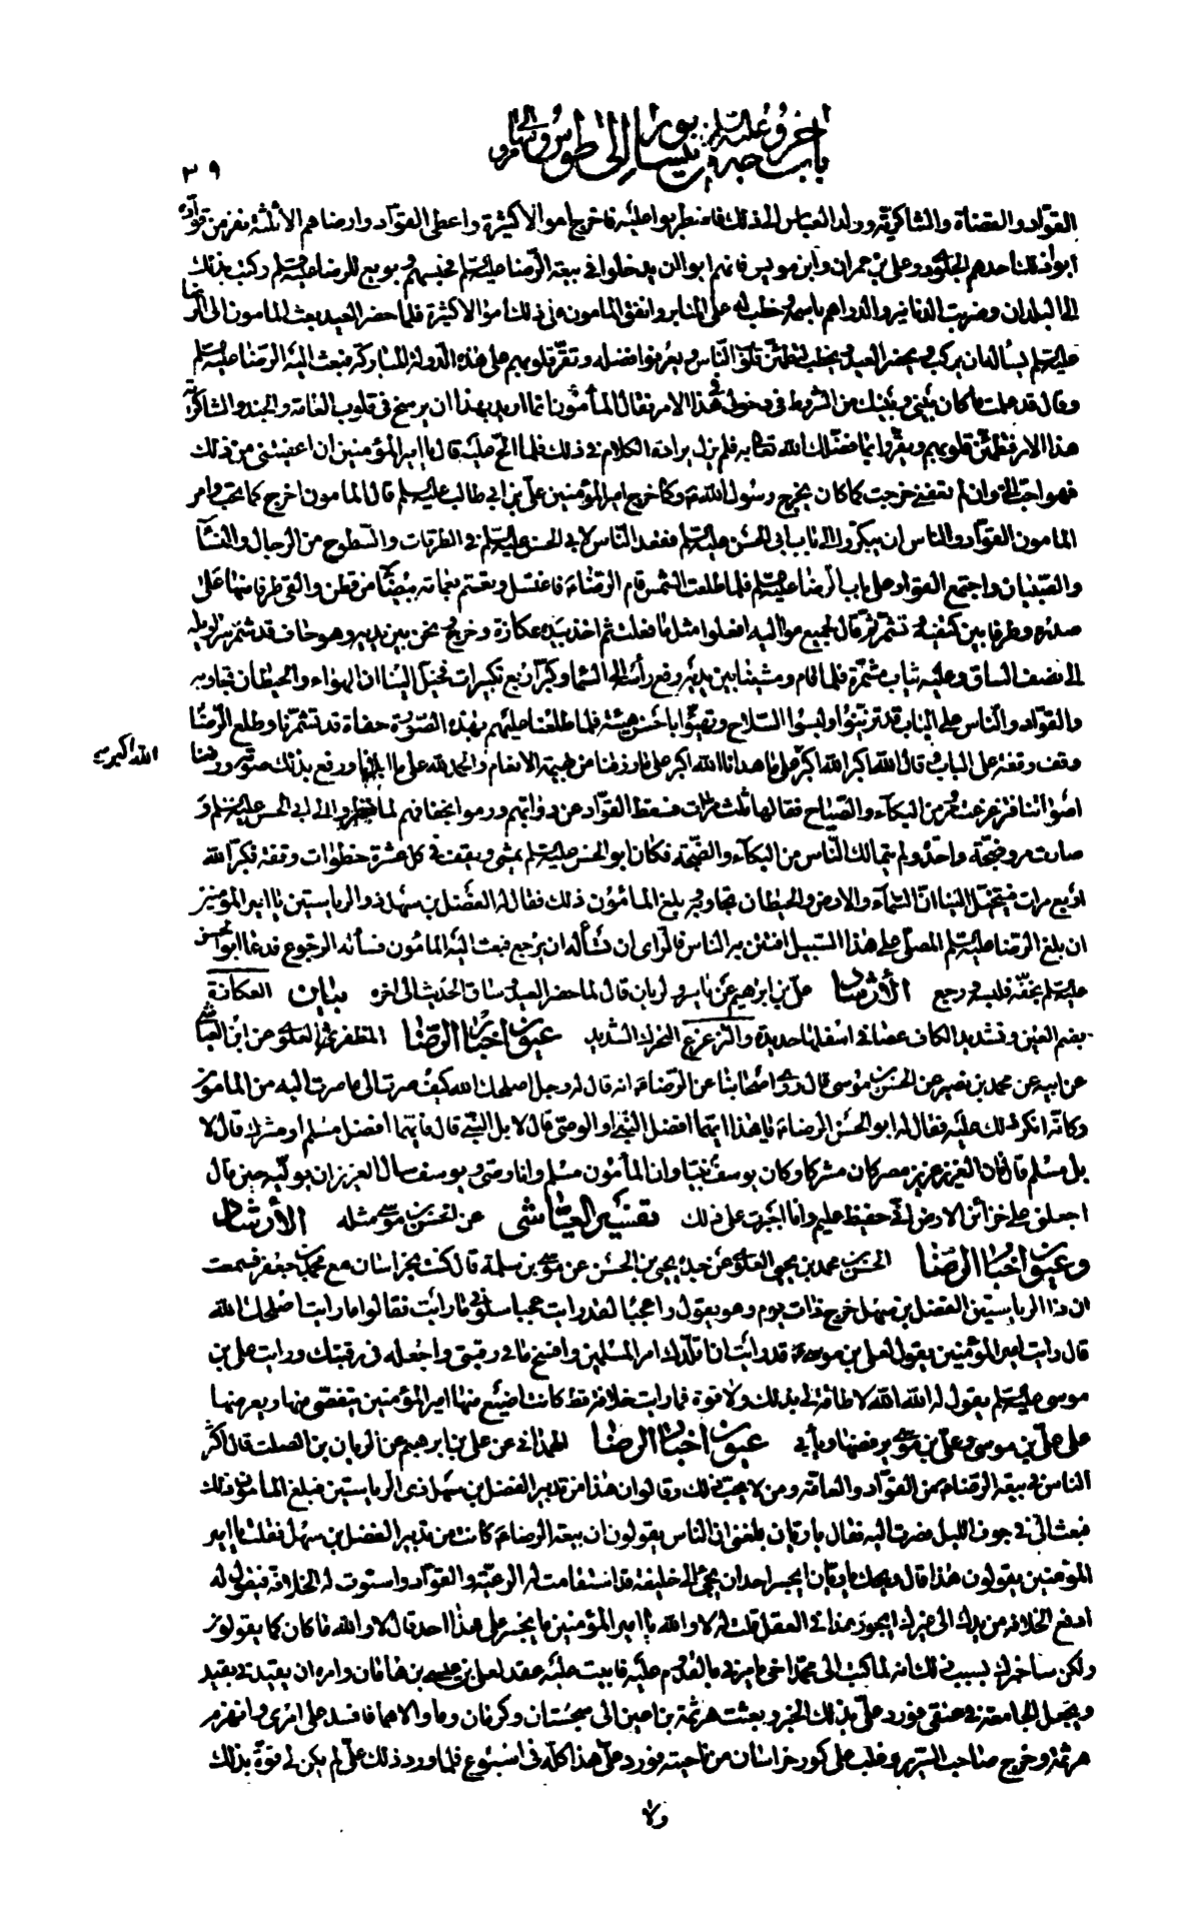 باب خروجه عليه السلام من نيسابور إلى طوس ومنها إلى مرو
٣٩
القوّاد والقضاة والشاكريّة وولد العباس إلى ذلك فاضطربوا عليه فاخرج أموالا كثيرة واعطى القوّاد وارضاهم الا ثلثة نفر من قوّاده
أبوا ذلك احدهم الجلودي وعلي بن عمران وابن مويس فانهم ابوا ان يدخلوا في بيعة الرّضا عليه السلم فحبسهم وبويع للرضا عليه السلم وكتب بذلك
إلى البلدان وضربت الدنانير والدراهم باسمه وخطب له على المنابر وانفق المامون في ذلك أموالا كثيرة فلما حضر العيد بعث المامون الى الرضا
عليه السلم يسأله ان يركب ويحضر العيد ويخطب لتطمئنّ قلوب النّاس ويعرفوا فضله وتقرّ قلوبهم على هذه الدولة المباركة فبعث اليه الرضا عليه السلم
وقال قد علمت ما كان بيني وبينك من الشروط في دخولي في هذا الامر فقال المأمون انما اريد بهذا ان يرسخ في قلوب العامة والجند والشاكرية
هذا الامر فتطمئنّ قلوبهم ويقرّوا بما فضّلك الله تعالى به فلم يزل يرادّه الكلام في ذلك فلما الحّ عليه قال يا امير المؤمنين ان اعفيتني من ذلك
فهو احبّ إليّ وان لم تعفني خرجت كما كان يخرج رسول الله ص وكما خرج امير المؤمنين علي بن ابي طالب عليه السلم قال المامون اخرج كما تحب وامر
المامون القوّاد والناس ان يبكّروا الى باب ابي الحسن عليه السلم فقعد النّاس لابي الحسن عليه السلم في الطرقات والسّطوح من الرجال والنساء
والصّبيان واجتمع القواد على باب الرّضا عليه السلم فلما طلعت الشمس قام الرضا ع فاغتسل وتعمّم بعمامة بيضاء من قطن والقى طرفا منها على
صدره وطرفا بين كتفيه وتشمّر ثم قال لجميع مواليه افعلوا مثل ما فعلت ثم اخذ بيده عكازة وخرج ونحن بين يديه وهو حاف قد شمّر سراويله
الى نصف الساق وعليه ثياب مشمّرة فلما قام ومشينا بين يديه رفع رأسه الى السّماء وكبّر أربع تكبيرات فخيّل الينا ان الهواء والحيطان تجاوبه
والقوّاد والناس على الباب قد تزيّنوا ولبسوا السّلاح وتهيّؤا باحسن هيئة فلما طلعنا عليهم بهذه الصّورة حفاة قد تشمّرنا وطلع الرّضا
وقف وقفة على الباب قال الله اكبر الله اكبر على ما هدانا الله اكبر على ما رزقنا من بهيمة الانعام والحمد لله على ما ابلانا ورفع بذلك صوته ورفعنا
الله اكبر
أصواتنا فتزعزعت مرو من البكاء والصّياح فقالها ثلث مرات فسقط القوّاد عن دوابّهم ورموا بخفافهم لما نظروا الى ابي الحسن عليه السلم و
صارت مرو ضجّة واحدة ولم يتمالك النّاس من البكاء والضجّة فكان ابو الحسن عليه السلم يمشي ويقف في كل عشرة خطوات وقفة فكبّر الله
أربع مرات فيتخيّل الينا ان السّماء والارض والحيطان تجاوبه وبلغ المأمون ذلك فقال له الفضل بن سهل ذو الرياستين يا امير المؤمنين
ان بلغ الرضا عليه السلم المصلّى على هذا السّبيل افتتن به الناس فالرأي ان تسأله ان يرجع فبعث اليه المامون فسأله الرّجوع فدعا ابو الحسن
عليه السلم بخفّه فلبسه ورجع الأرشاد علي بن ابراهيم عن ياسر والريان قال لما حضر العيد وساق الحديث الى اخره بيان العكازة
بضم العين وتشديد الكاف عصا في اسفلها حديدة والتزعزع التحرك الشديد عيون اخبار الرضا المظفر العلوي عن ابن العياشي
عن ابيه عن محمد بن نصير عن الحسن بن موسى قال روى اصحابنا عن الرضا ع انه قال له رجل اصلحك الله كيف صرت الى ما صرت اليه من المامون
وكانّه انكر ذلك عليه فقال له ابو الحسن الرضا ع يا هذا ايّهما افضل النّبي او الوصيّ قال لا بل النّبي قال فايّهما افضل مسلم او مشرك قال لا
بل مسلم قال فان العزيز عزيز مصر كان مشركا وكان يوسف نبيا وان المأمون مسلم وانا وصيّ ويوسف سال العزيز ان يولّيه حين قال
اجعلني على خزائن الارض انّي حفيظ عليم وانا اجبرت على ذلك تفسير العيّاشي عن الحسن بن موسى مثله الأرشاد
وعيون اخبار الرضا الحسن بن محمد بن يحيى العلوي عن جدّه يحيى بن الحسن عن موسى بن سلمة قال كنت بخراسان مع محمد بن جعفر فسمعت
ان ذا الرياستين الفضل بن سهل خرج ذات يوم وهو يقول واعجبا لقد رايت عجبا سلوني ما رأيت فقالوا ما رايت اصلحك الله
قال رايت امير المؤمنين يقول لعلي بن موسى ع قد رأيت ان اقلّدك امر المسلمين وافسخ ما في رقبتي واجعله في رقبتك ورايت علي بن
موسى عليه السلم يقول له الله الله لا طاقة لي بذلك ولا قوة فما رايت خلافة قط كانت اضيع منها امير المؤمنين يتفصّى منها ويعرضها
على عليّ بن موسى وعلي بن موسى يرفضها ويأبى عيون اخبار الرضا الهمذاني عن علي بن ابرهيم عن الريان بن الصلت قال اكثر
الناس في بيعة الرضا ع من القوّاد والعامّة ومن لا يحب ذلك وقالوا ان هذا من تدبير الفضل بن سهل ذي الرياستين فبلغ المأمون ذلك
فبعث اليّ في جوف الليل فصرت اليه فقال يا ريّان بلغني ان الناس يقولون ان بيعة الرضا ع كانت من تدبير الفضل بن سهل فقلت يا امير
المؤمنين يقولون هذا قال ويحك يا ريّان ايجسر احد ان يجيء الى خليفة قد استقامت له الرعيّة والقوّاد واستوت له الخلافة فيقول له
ادفع الخلافة من يدك الى غيرك ايجوز هذا في العقل قلت له لا والله يا امير المؤمنين ما يجسر على هذا احد قال لا والله ما كان كما يقولون
ولكن ساخبرك بسبب ذلك انه لما كتب الى محمّد اخي يامرني بالقدوم عليه فابيت عليه عقد لعلي بن عيسى بن هامان وامره ان يقيدني بقيد
ويجعل الجامعة في عنقي فورد علي بذلك الخبر وبعثت هرثمة بن اعين الى سجستان وكرمان وما والاهما فافسد علي امري وانهزم
هرثمة وخرج صاحب السرير وغلب على كور خراسان من ناحيته فورد عليّ هذا كلّه في اسبوع فلما ورد ذلك عليّ لم يكن لي قوّة بذلك
ولا